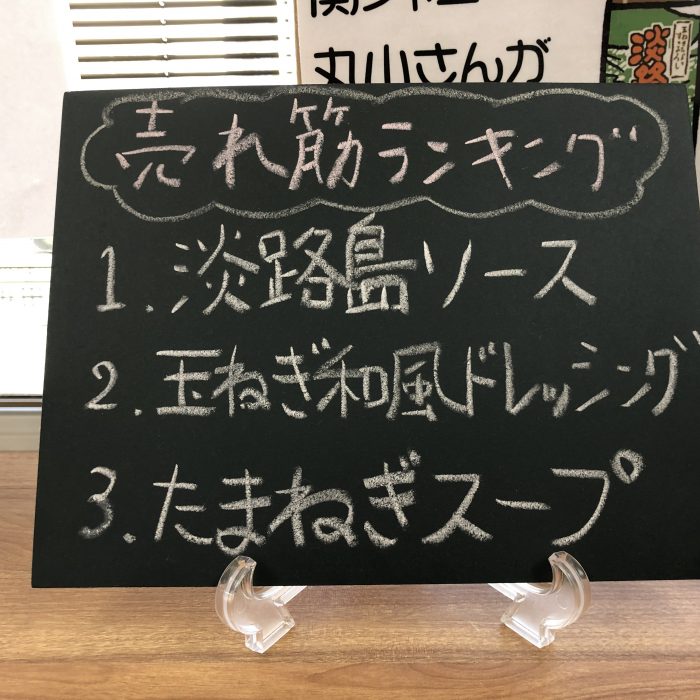 丸山さんが
淡路
売れ筋ランキング
1.淡路島ソース
2.玉ねぎ和風ドレッシング
3.たまねぎスープ